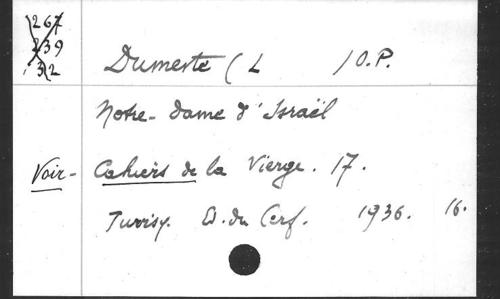 267
239
132
Dumeste (L )O.P.
Notre-Dame d'Israël
Voir - Cahiers de la Vierge. 17.
Juvisy. Ed. du Cerf. 1936. 16.